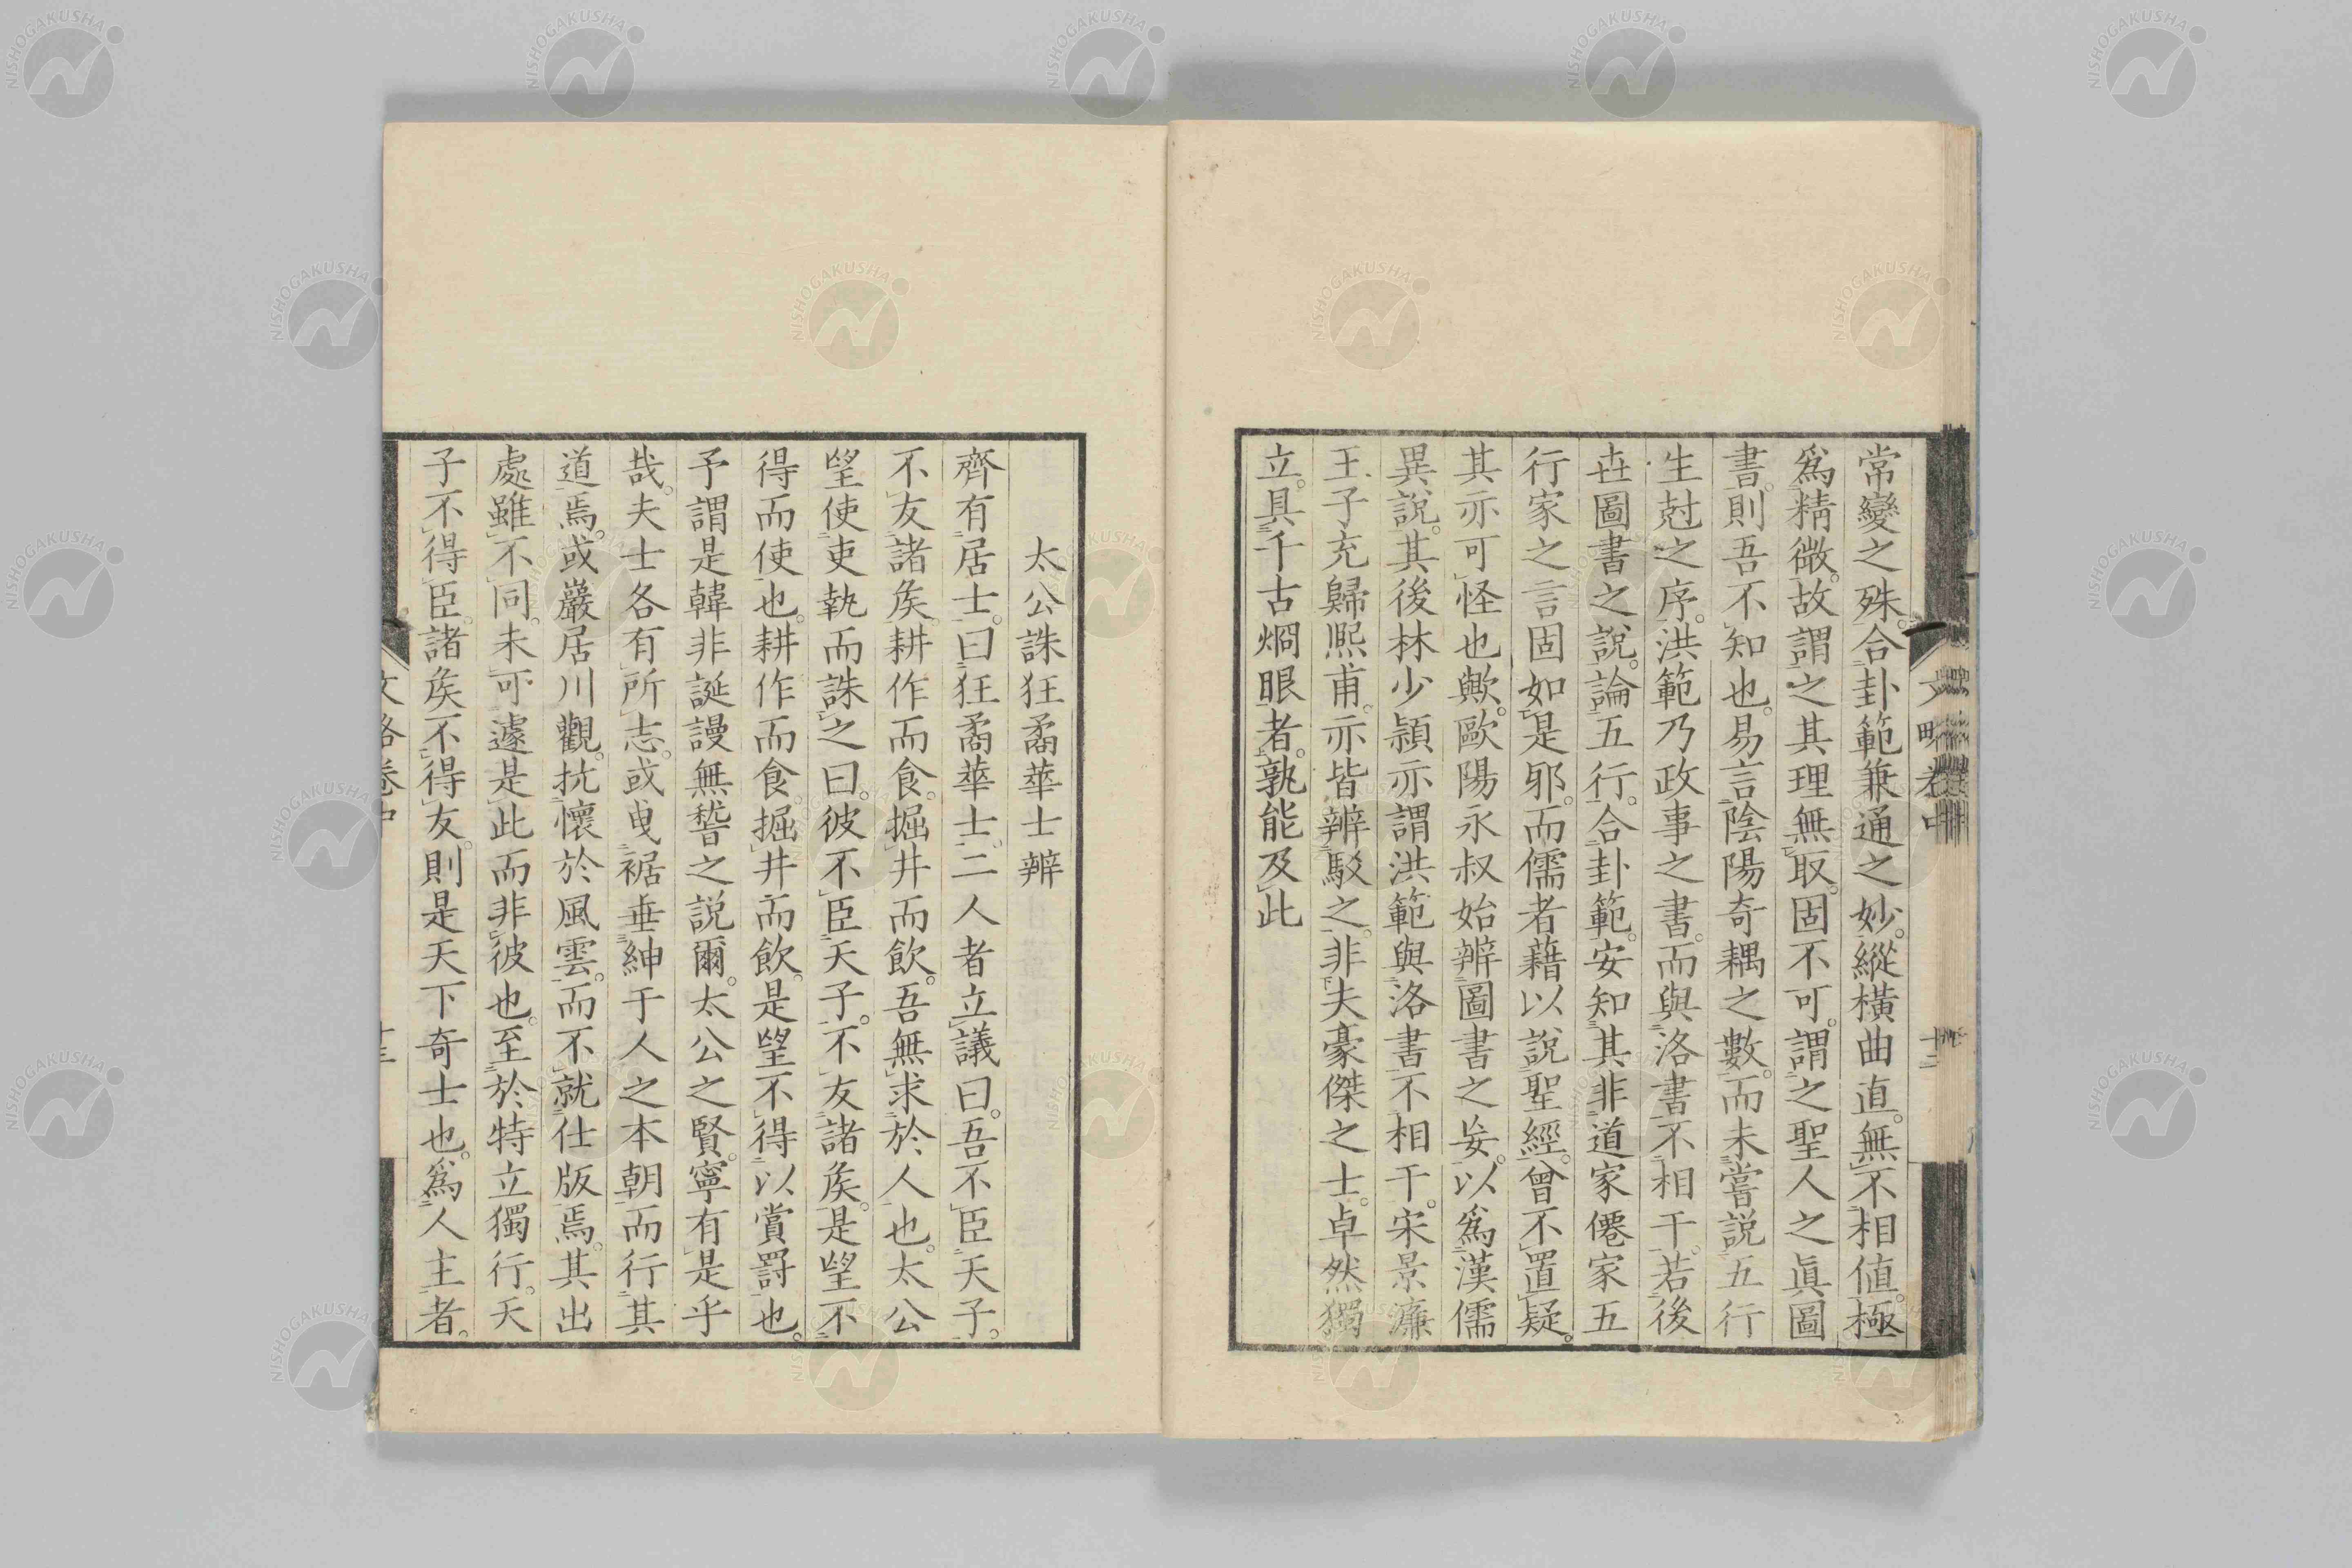 常變之殊。合卦範兼通之妙。縱橫曲直。無不相値。極
爲精微。故謂之其理無取。固不可。謂之聖人之眞圖
書。則吾不知也。易言陰陽奇耦之數。而未嘗説五行
生尅之序。洪範乃政事之書。而與洛書不相干。若後
世圖書之説。論五行。合卦範。安知其非道家僊家五
行家之言固如是邪。而儒者藉以説聖經。曾不置疑。
其亦可怪也歟。歐陽永叔始辨圖書之妄。以爲漢儒
異説。其後林少穎亦謂洪範與洛書不相干。宋景濂
王子充歸熙甫。亦皆辨駁之。非夫豪傑之士。卓然獨
立。具千古烱眼者。孰能及此
太公誅狂矞華士辨
齊有居士。曰狂矞華士。二人者立議曰。吾不臣天子。
不友諸矦。耕作而食。掘井而飲。吾無求於人也。太公
望使吏執而誅之曰。彼不臣天子。不友諸矦。是望不
得而使也。耕作而食。掘井而飲。是望不得以賞罰也。
予謂是韓非誕謾無稽之説爾。太公之賢。寧有是乎
哉。夫士各有所志。或曳裾垂紳于人之本朝而行其
道焉。或巖居川觀。抗懷於風雲。而不就仕版焉。其出
處雖不同。未可遽是此而非彼也。至於特立獨行。天
子不得臣。諸矦不得友。則是天下奇士也。爲人主者。
文略卷中
十二
十三
NISHOGAKUSHA